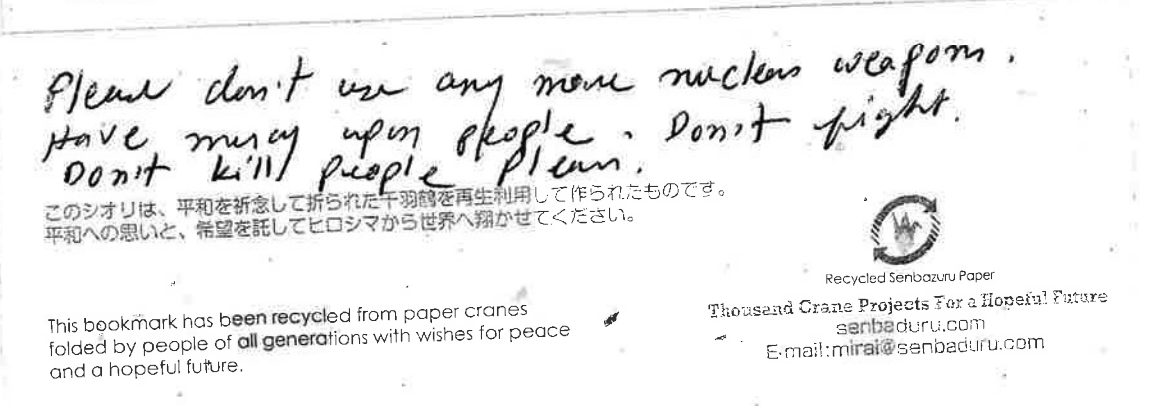 Please don't use any more nuclear weapons.
Have mercy upon people. Don't fight.
Don't kill people Please.
このシオリは、平和を祈念して折られた千羽鶴を再生利用して作られたものです。
平和への思いと、希望を託してヒロシマから世界へ翔かせてください。
Recycled Senbazuru Paper
This bookmark has been recycled from paper cranes
folded by people of all generations with wishes for peace
and a hopeful future.
Thousand Crane Projects For a Hopeful Future
senbaduru.com
E-mail:mirai@senbaduru.com